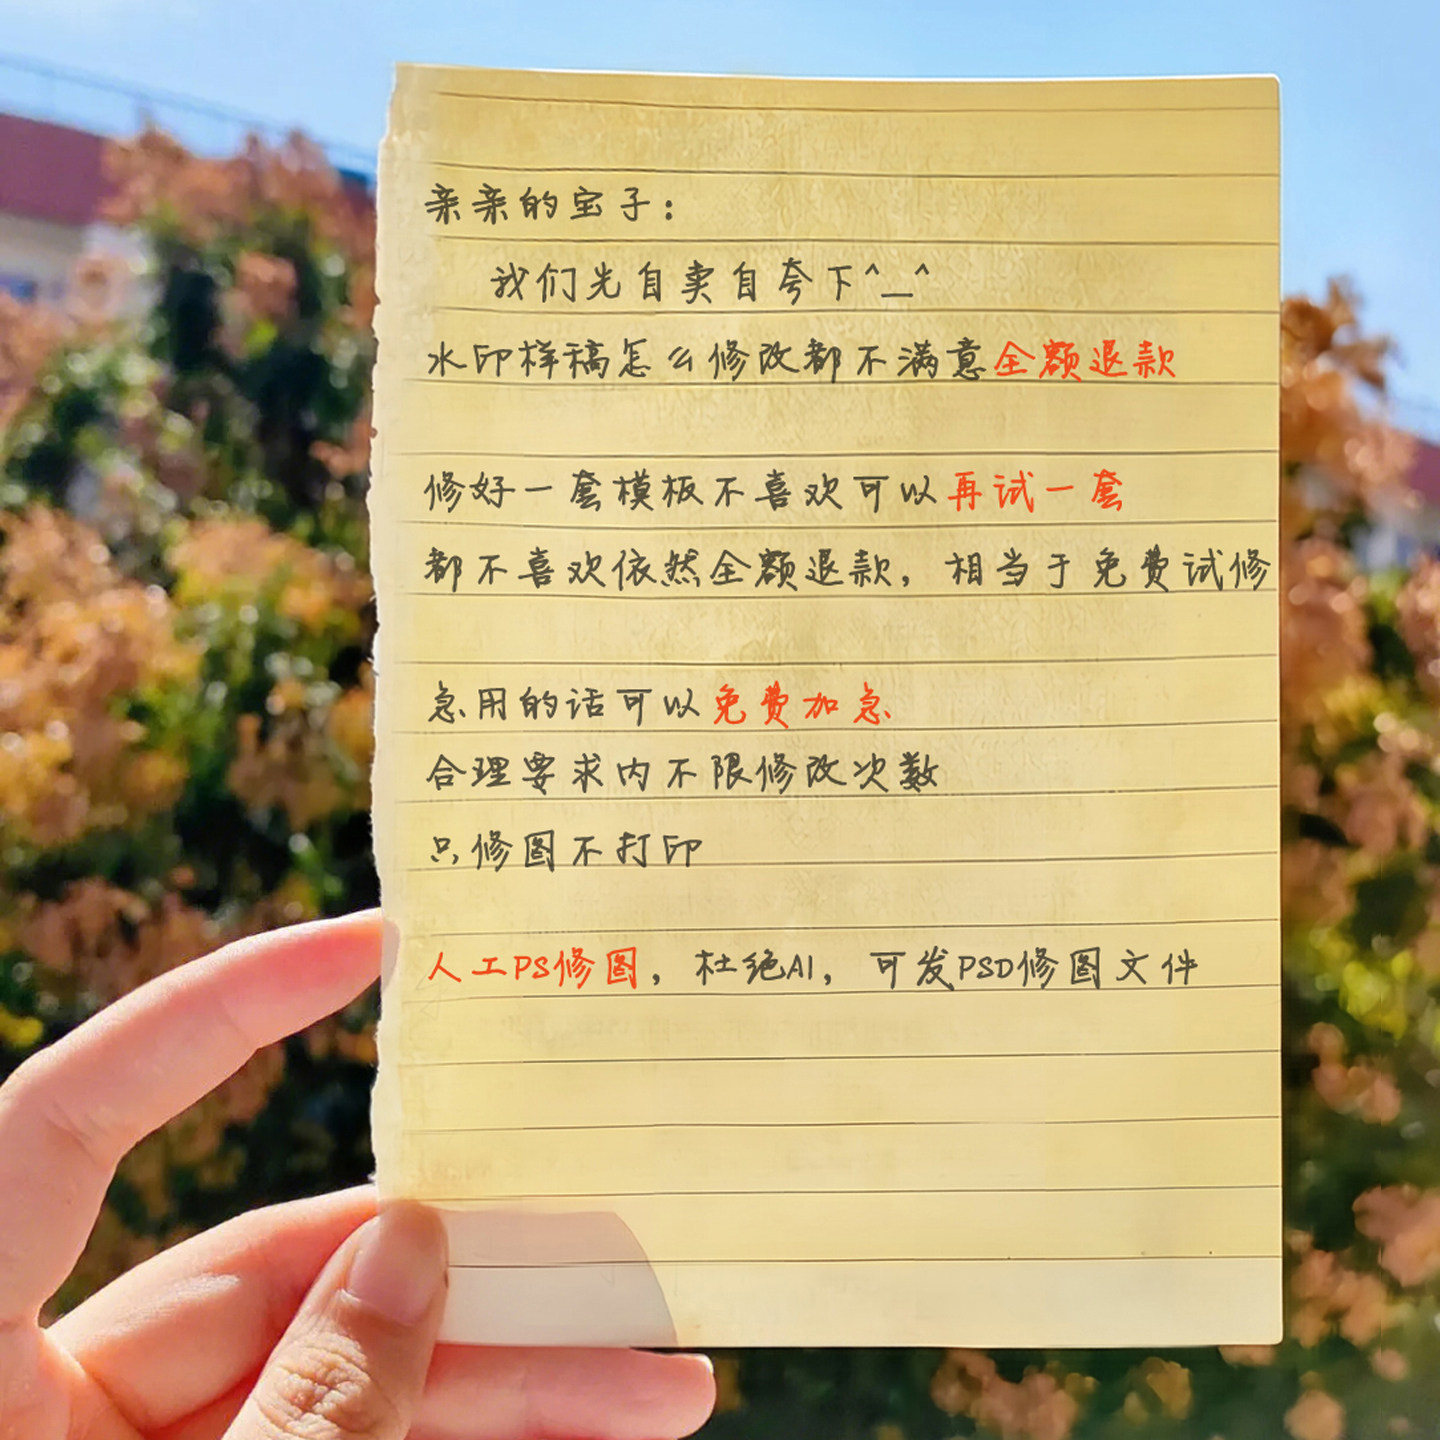 亲亲的宝子：
我们先自卖自夸下^_^
水印样稿怎么修改都不满意全额退款
修好一套模板不喜欢可以再试一套
都不喜欢依然全额退款，相当于免费试修
急用的话可以免费加急
合理要求内不限修改次数
只修图不打印
人工PS修图，杜绝AI，可发PSD修图文件